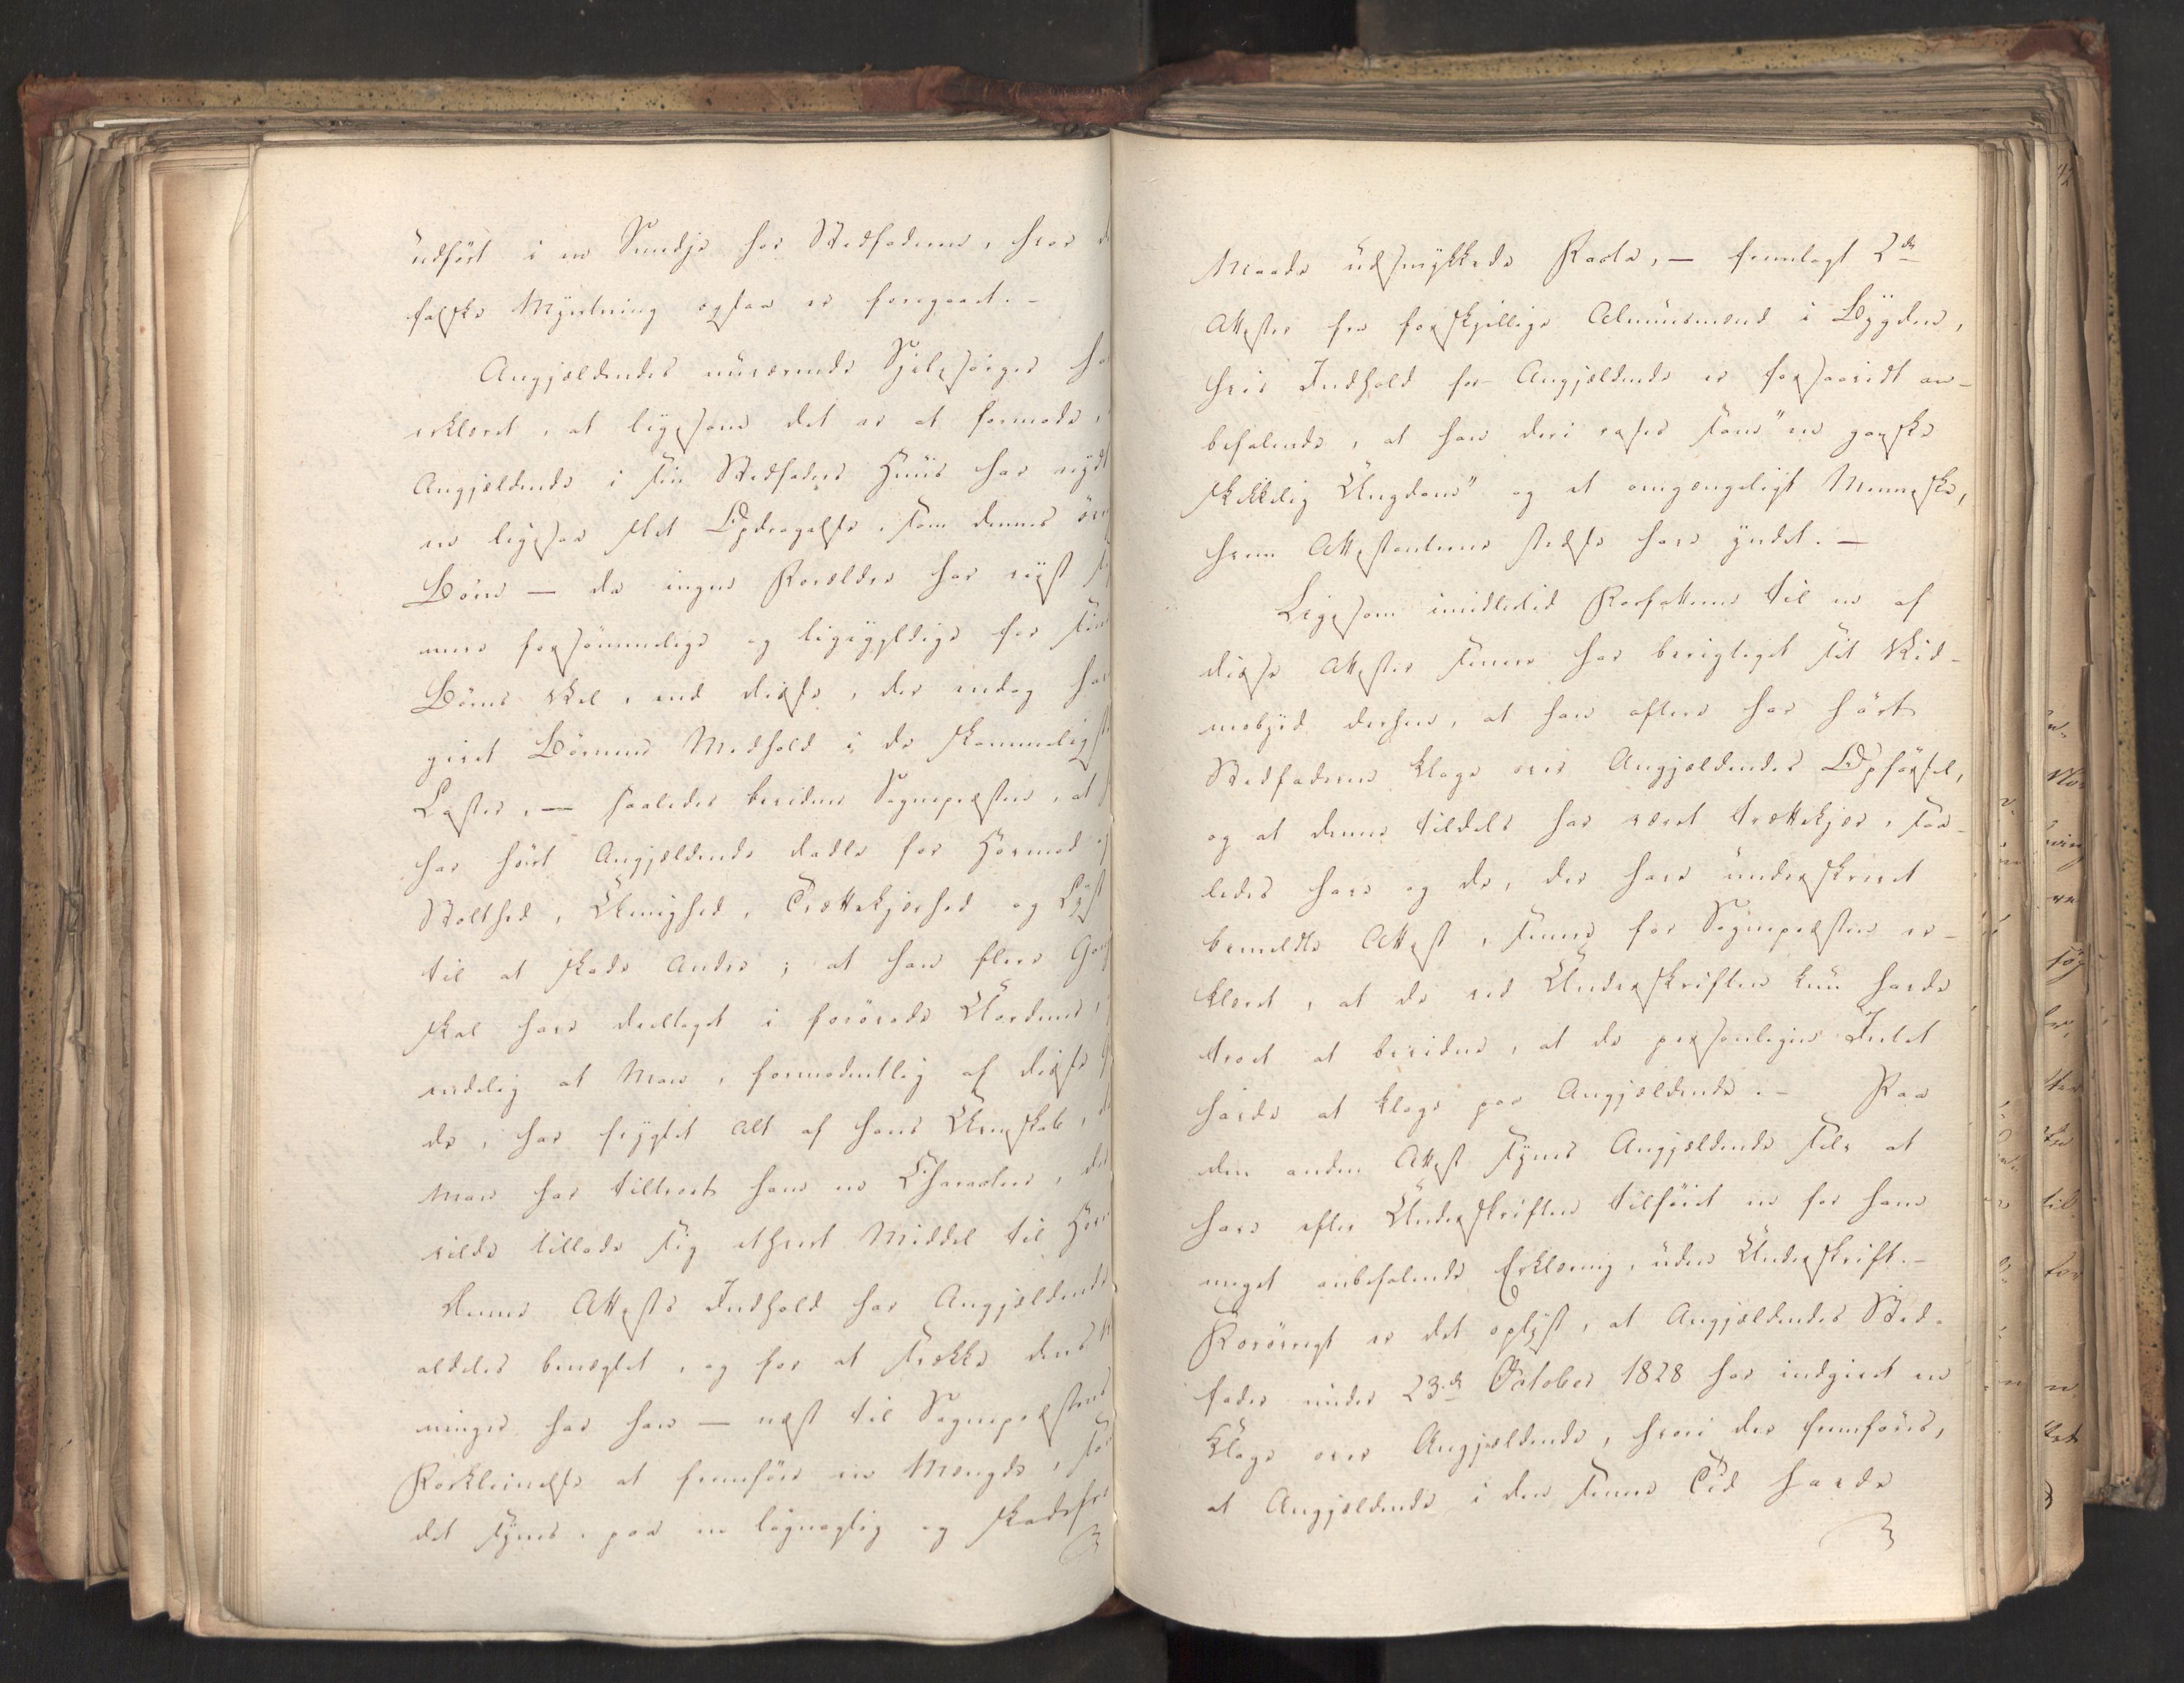 udført i en Smedje hos Stedfaderen, hvor d
falske Myntning ogsaa er foregaaet. -
Angjældendes nuværende Sjelesørger ha
erklæret, at ligesom det er at formode,
Angjældende i sin Stedfaders Huus har nydt
en ligesaa slet Opdragelse, som dennes øv
Børn — da ingen Forældre har viist
mere forsømmelige og ligegyldige for sin
Børns Vel, end disse, der endog ha
givet Børnene Medhold i de skammeligst
Laster, — saaledes bevidner Sognepræsten, at
har hørt Angjældende dadle for Hovmod og
Stolthed, Uenighed, Trættekjærhed og Lyst
til at skade Andre; at han flere Gan
skal have deeltaget i forøvede Uordener,
endelig at Man, formodentlig af disse
de, har frygtet Alt af hans Uvenskab,
Man har tiltroet ham en Characteer, de
vilde tillade sig ethvert Middel til Hev
Denne Attests Indhold har Angjældende
aldeles benægtet, og for at svække dens
ninger har han — næst til Sognepræstens
Forkleinelse at fremføre en Mængde, som
det synes, paa en løgnagtig og skadefro
Maade udsmykkede Facta, — fremlagt 2de
Attester fra forskjellige Almuesmænd i Bygden,
hvis Indhold for Angjældende er forsaavidt an-
befalende, at han deri roses som "en ganske
skikkelig Ungdom" og et omgængeligt Menneske,
hvem Attestanterne stedse have yndet. —
Ligesom imidlertid Forfatteren til en af
disse Attester senere har berigtiget sit Vid-
nesbyrd derhen, at han oftere har hørt
Stedfaderen klage over Angjældendes Opførsel,
og at denne tildels har været trættekjær, saa-
ledes have og de, der have underskrevet
bemeldte Attest, senere for Sognepræsten er-
klæret, at de ved Underskriften kun havde
troet at bevidne, at de personligen Intet
havde at klage paa Angjældende. - Paa
den anden Attest synes Angjældende selv at
have efter Underskriften tilføiet en for ham
meget anbefalende Erklæring, uden Underskrift. -
Forøvrigt er det oplyst, at Angjældendes Sted-
fader under 23de October 1828 har indgivet en
Klage over Angjældende, hvori der fremføres,
at Angjældende i den senere Tid havde